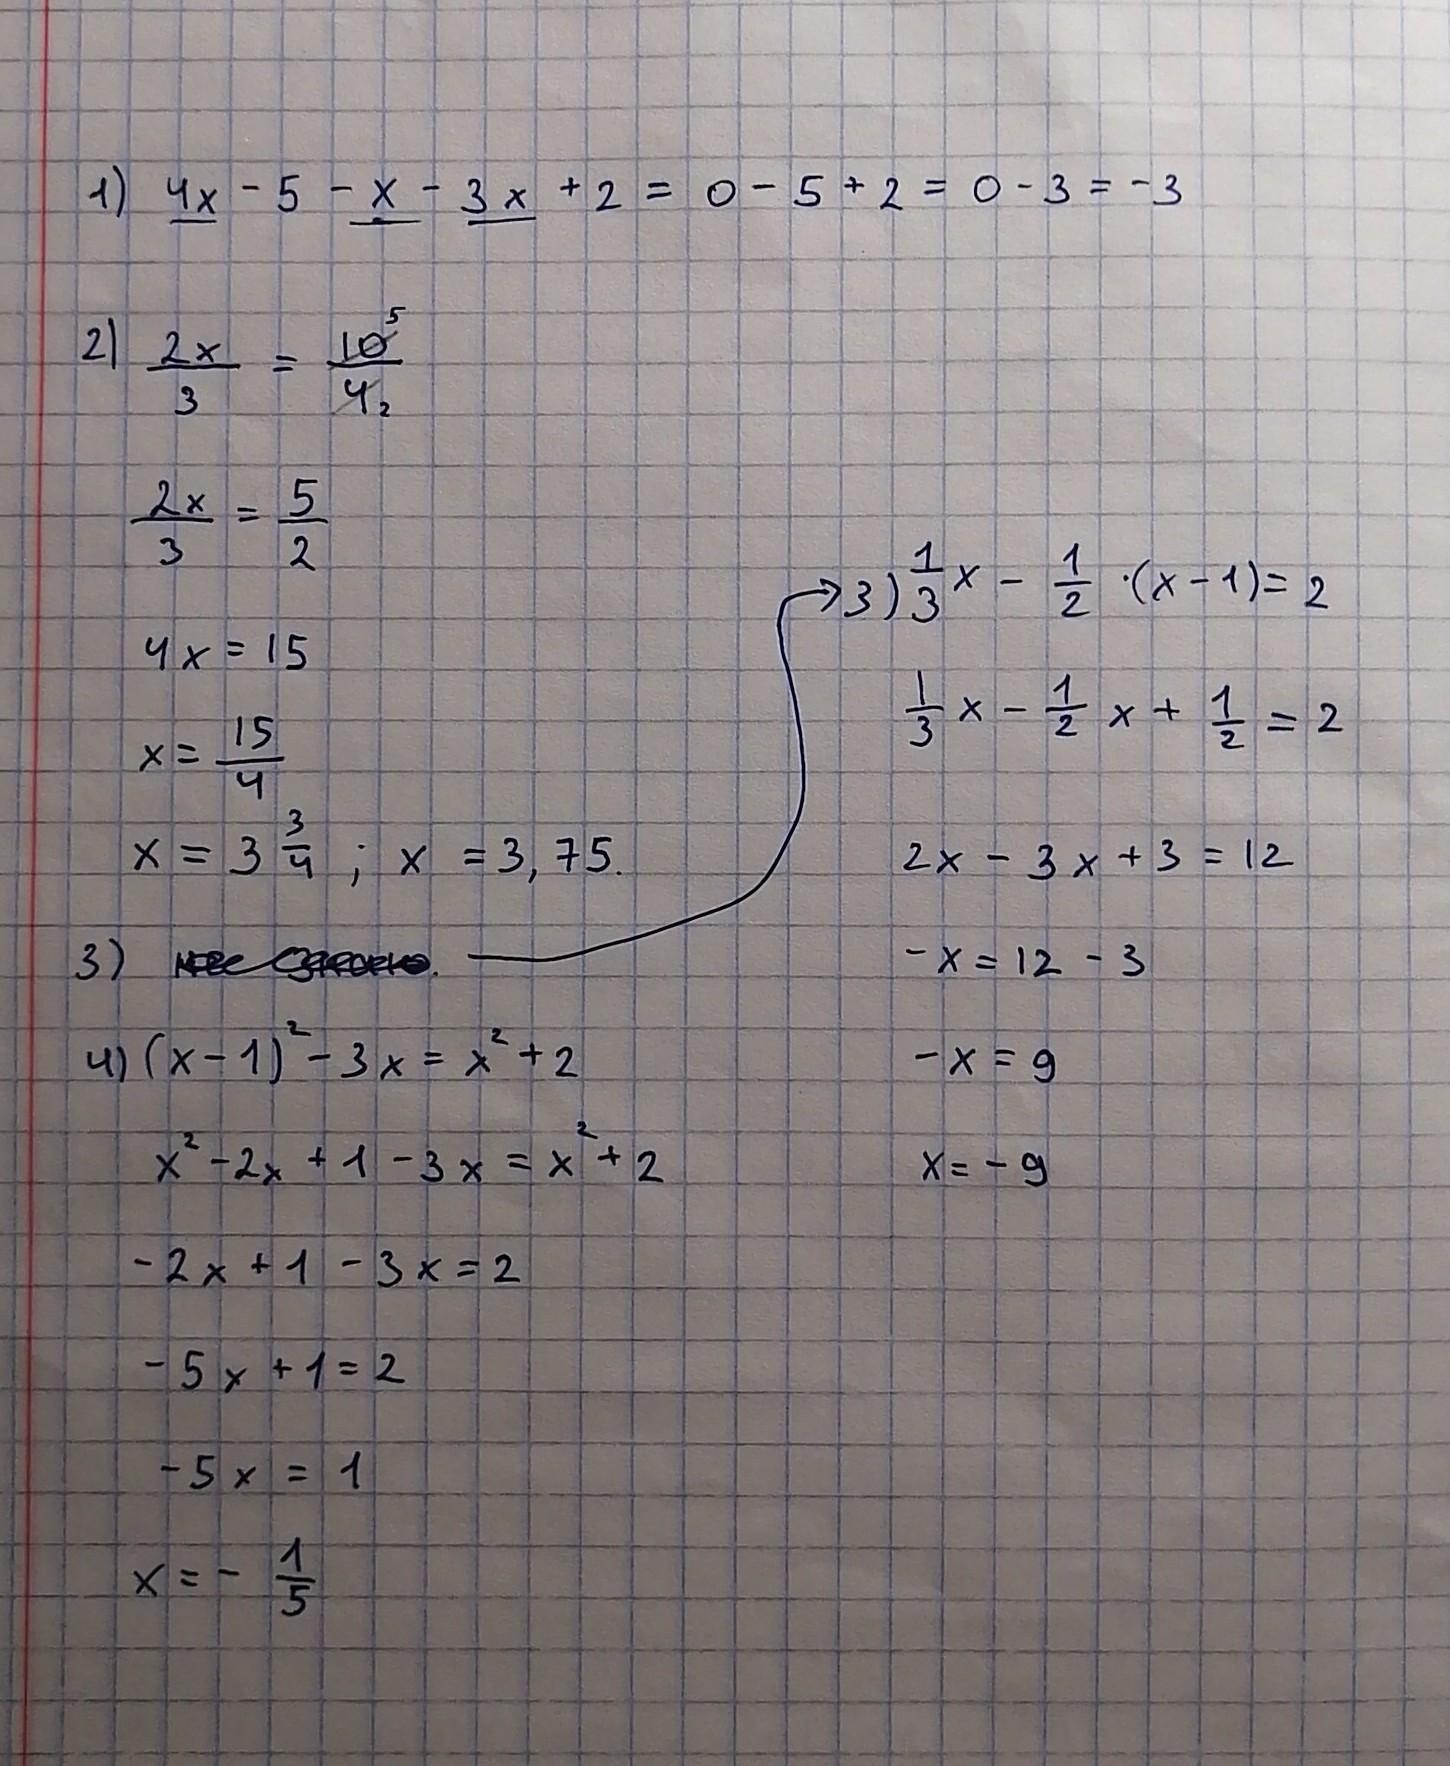 1) 4x - 5 - x - 3x + 2 = 0 - 5 + 2 = 0 - 3 = -3
2) 2x/3 = 10/4 5 2
2x/3 = 5/2
4x = 15
x = 15/4
x = 3 3/4 ; x = 3,75.
3)
→ 3) 1/3 x - 1/2 · (x - 1) = 2
1/3 x - 1/2 x + 1/2 = 2
2x - 3x + 3 = 12
-x = 12 - 3
-x = 9
x = -9
4) (x - 1)² - 3x = x² + 2
x² - 2x + 1 - 3x = x² + 2
-2x + 1 - 3x = 2
-5x + 1 = 2
-5x = 1
x = - 1/5